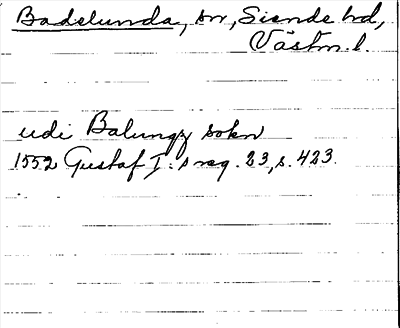 Badelunda, sn, Siende hd,
Västm. l.
udi Balungz sokn
1552 Gustaf I:s reg. 23, s. 423.